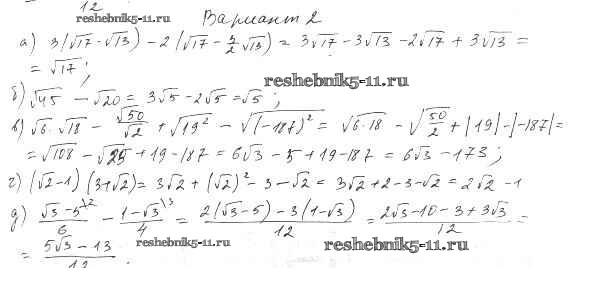 12
reshebnik5-11.ru
Вариант 2
а) 3(√17 - √13) - 2(√17 - 3/2 √13) = 3√17 - 3√13 - 2√17 + 3√13 =
= √17;
reshebnik5-11.ru
б) √45 - √20 = 3√5 - 2√5 = √5;
в) √6 · √18 - √50/√2 + √19² - √(-187)² = √6·18 - √50/2 + |19| - |-187| =
= √108 - √25 + 19 - 187 = 6√3 - 5 + 19 - 187 = 6√3 - 173;
г) (√2 - 1)(3 + √2) = 3√2 + (√2)² - 3 - √2 = 3√2 + 2 - 3 - √2 = 2√2 - 1
д) √3 - 5\2 / 6 - 1 - √3\3 / 4 = 2(√3 - 5) - 3(1 - √3) / 12 = 2√3 - 10 - 3 + 3√3 / 12 =
= 5√3 - 13 / 12.
reshebnik5-11.ru
reshebnik5-11.ru